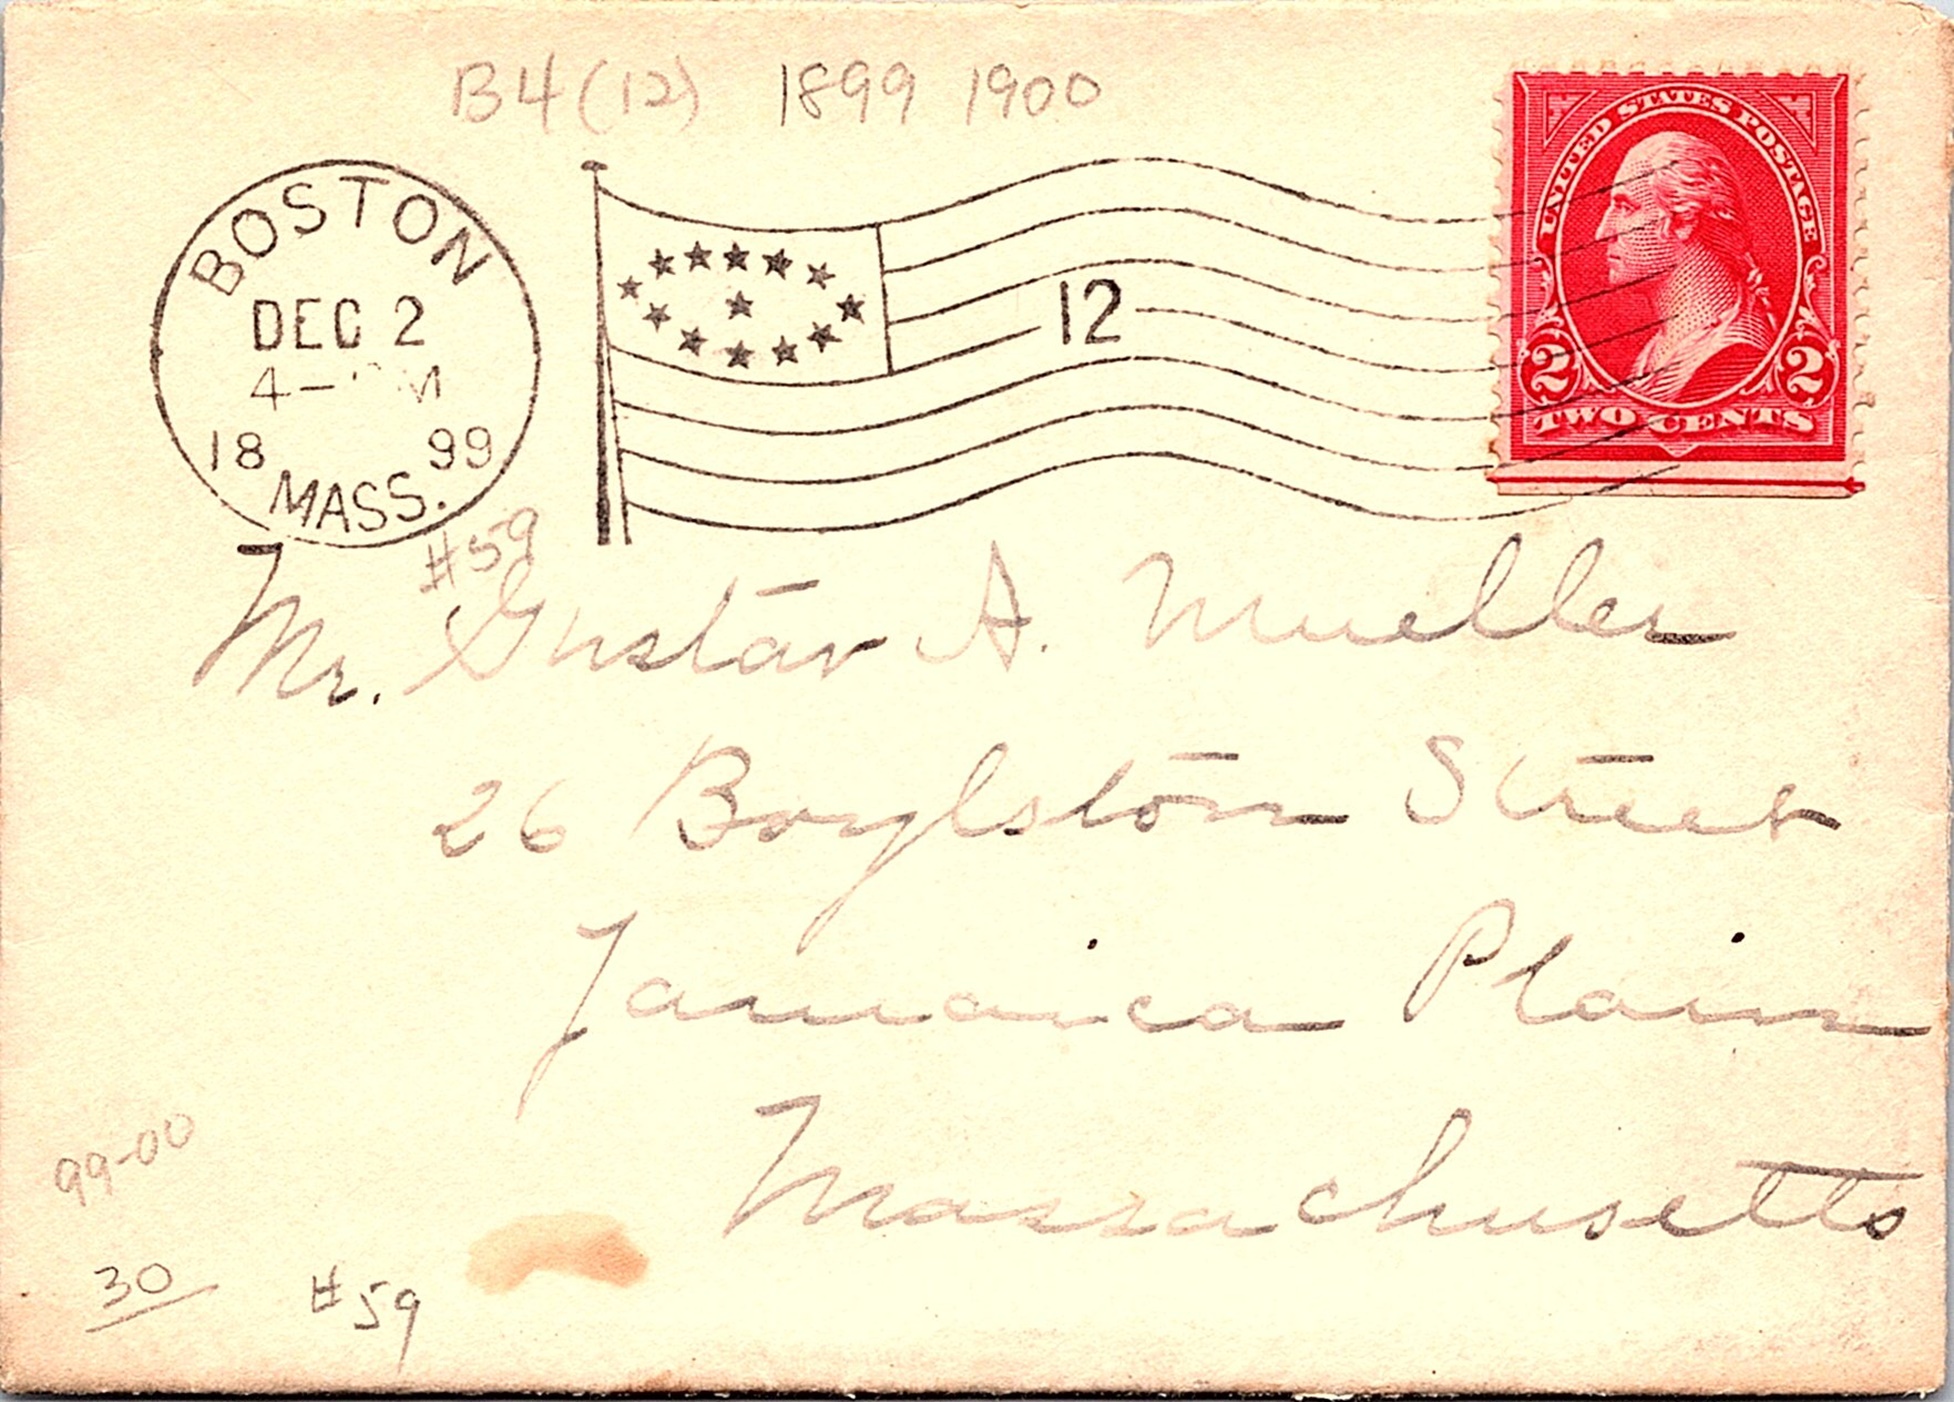 B4 (12) 1899 1900
UNITED STATES POSTAGE
2 2
TWO CENTS
BOSTON
DEC 2
4- M
18 99
MASS.
12
#59
Mr. Gustav A. Mueller
26 Boylston Street
Jamaica Plain
Massachusetts
99-00
30
#59